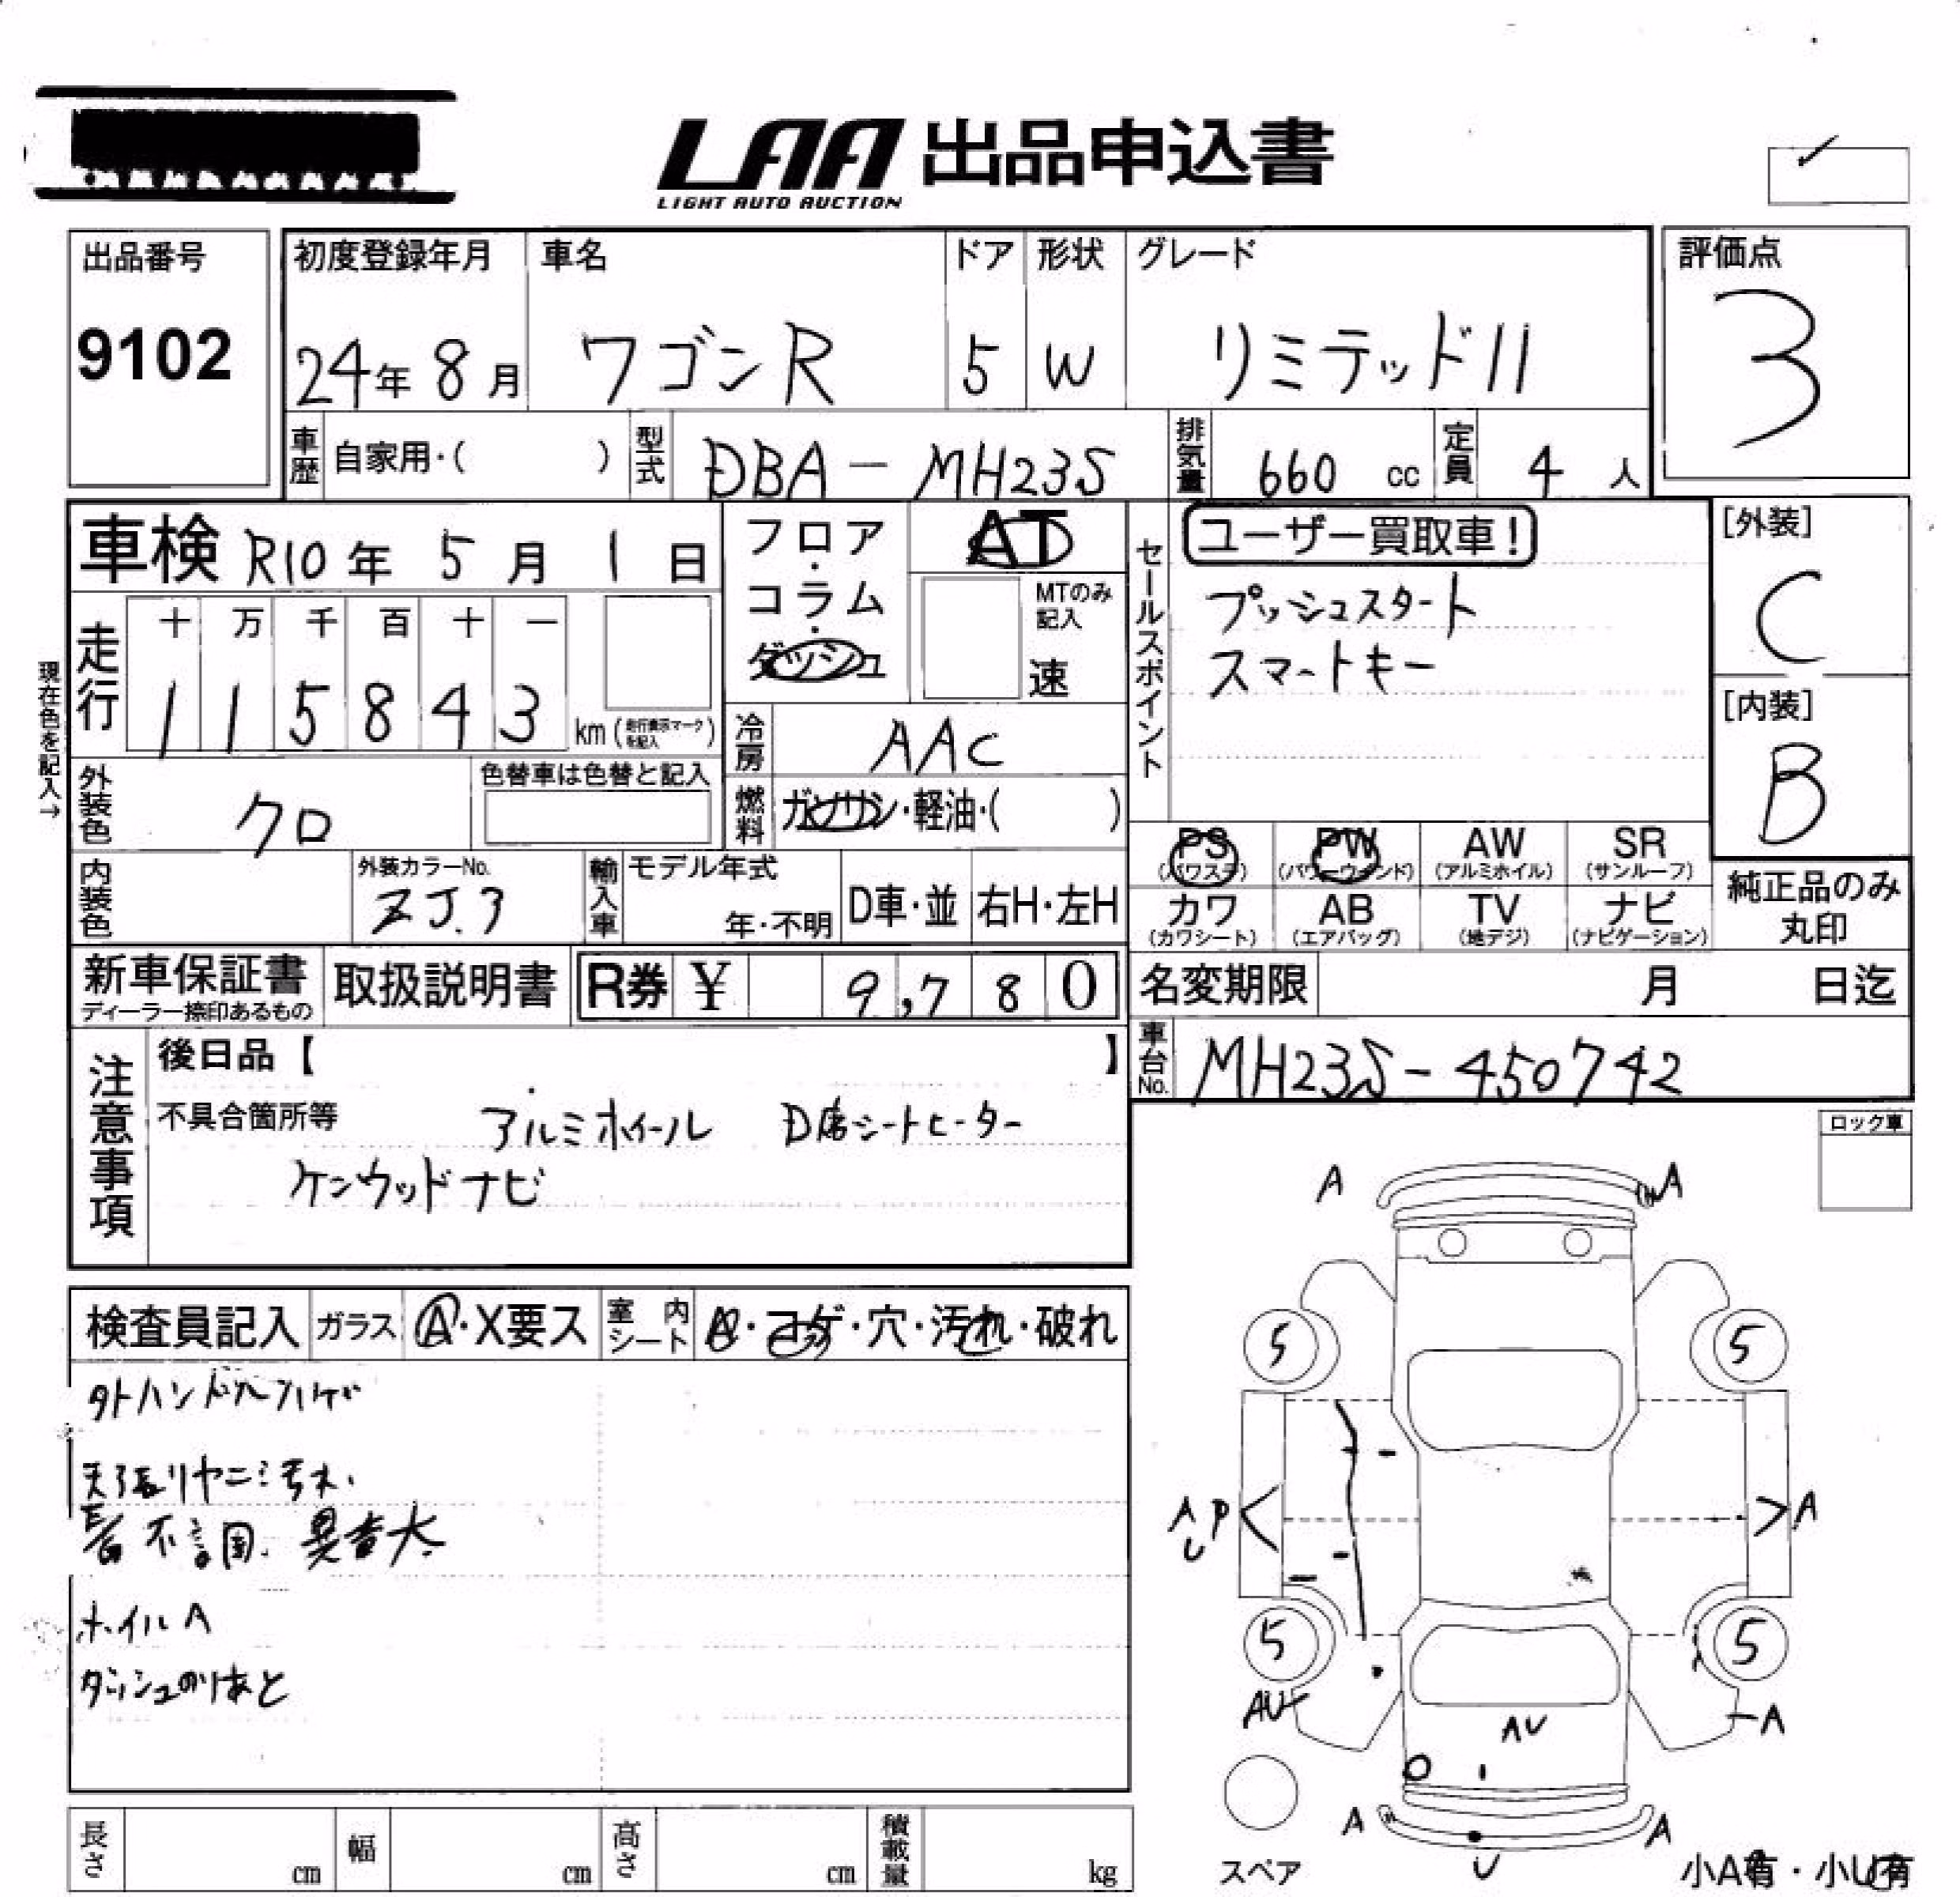 LAA 出品申込書
LIGHT AUTO AUCTION
出品番号
9102
初度登録年月
24年 8月
車名
ワゴンR
ドア
5
形状
W
グレード
リミテッドII
評価点
3
車歴 自家用・( )
型式 DBA-MH23S
排気量 660 cc
定員 4 人
車検 R10年 5月 1日
フロア・コラム・ダッシュ
AT
MTのみ記入
速
セールスポイント
ユーザー買取車!
プッシュスタート
スマートキー
[外装]
C
[内装]
B
現在色を記入→
走行
十 万 千 百 十 一
1 1 5 8 4 3 km (走行表示マークを記入)
冷房 AAC
外装色 クロ
色替車は色替と記入
燃料 ガソリン・軽油・( )
内装色
外装カラーNo.
ZJ3
輸入車
モデル年式
年・不明
D車・並
右H・左H
PS (パワステ)
PW (パワーウインド)
AW (アルミホイル)
SR (サンルーフ)
カワ (カワシート)
AB (エアバッグ)
TV (地デジ)
ナビ (ナビゲーション)
純正品のみ丸印
新車保証書
ディーラー捺印あるもの
取扱説明書
R券 ¥ 9,780
名変期限 月 日迄
車台No. MH23S-450742
注意事項
後日品【 】
不具合箇所等 アルミホイール D席シートヒーター
ケンウッドナビ
ロック車
検査員記入
ガラス A・X要ス
室内シート A・コゲ・穴・汚れ・破れ
天張りヤニ汚れ
ホイルA
ダッシュのりあと
A A
5 5
A P
U
A
5 5
AU
AU
A
A A
U
スペア
小A有・小U有
長さ cm
幅 cm
高さ cm
積載量 kg